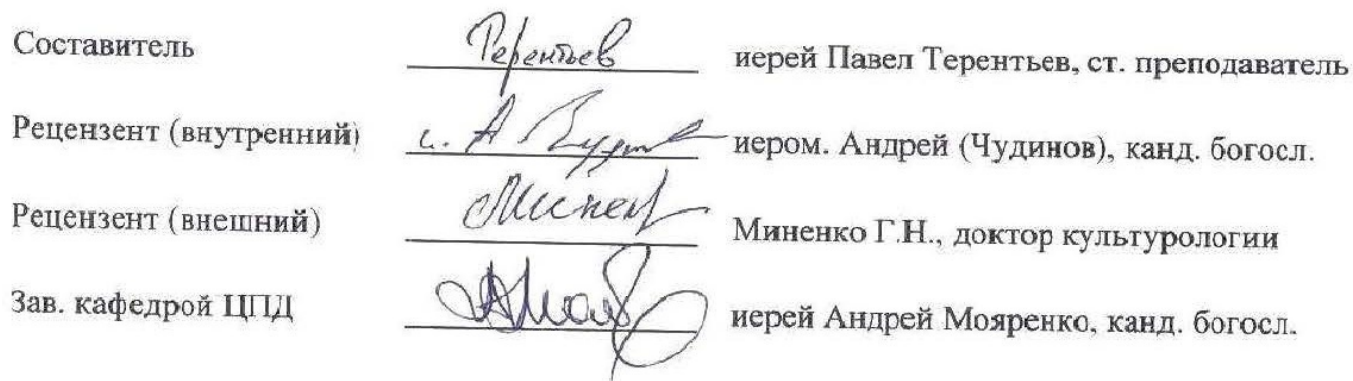 Составитель Терентьев иерей Павел Терентьев, ст. преподаватель
Рецензент (внутренний) и. А иером. Андрей (Чудинов), канд. богосл.
Рецензент (внешний) Миненко Г.Н., доктор культурологии
Зав. кафедрой ЦПД иерей Андрей Мояренко, канд. богосл.